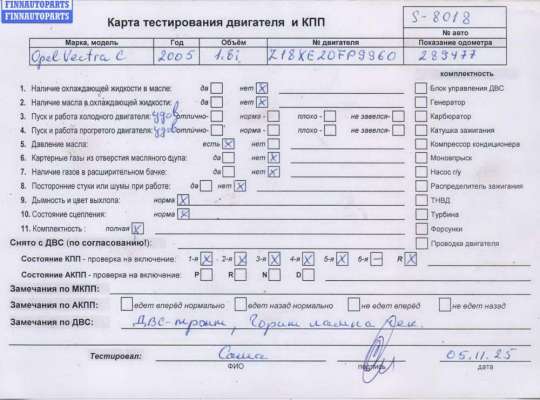 FINNAUTOPARTS
FINNAUTOPARTS
Карта тестирования двигателя и КПП
S-8018
№ авто
Марка, модель Год Объём № двигателя Показание одометра
Opel Vectra C 2005 1.8i Z18XE20FP9960 289477
комплектность
1. Наличие охлаждающей жидкости в масле: да нет x Блок управления ДВС
2. Наличие масла в охлаждающей жидкости: да нет x Генератор
3. Пуск и работа холодного двигателя: удов отлично- норма - плохо - не завелся- Карбюратор
4. Пуск и работа прогретого двигателя: удов отлично- норма - плохо - не завелся- Катушка зажигания
5. Давление масла: есть x нет Компрессор кондиционера
6. Картерные газы из отверстия масляного щупа: да нет x Моновпрыск
7. Наличие газов в расширительном бачке: да нет x Насос г/у
8. Посторонние стуки или шумы при работе: да нет x Распределитель зажигания
9. Дымность и цвет выхлопа: норма x ТНВД
10. Состояние сцепления: норма x Турбина
11. Комплектность : полная x Форсунки
Снято с ДВС (по согласованию!): Проводка двигателя
Состояние КПП - проверка на включение: 1-я x 2-я x 3-я x 4-я x 5-я x 6-я – R x
Состояние АКПП - проверка на включение: P R N D
Замечания по МКПП:
Замечания по АКПП: едет вперёд нормально едет назад нормально не едет вперёд не едет назад
Замечания по ДВС: ДВС-троит, Горит лампа Чек.
Тестировал: Саша 05.11.25
ФИО подпись дата